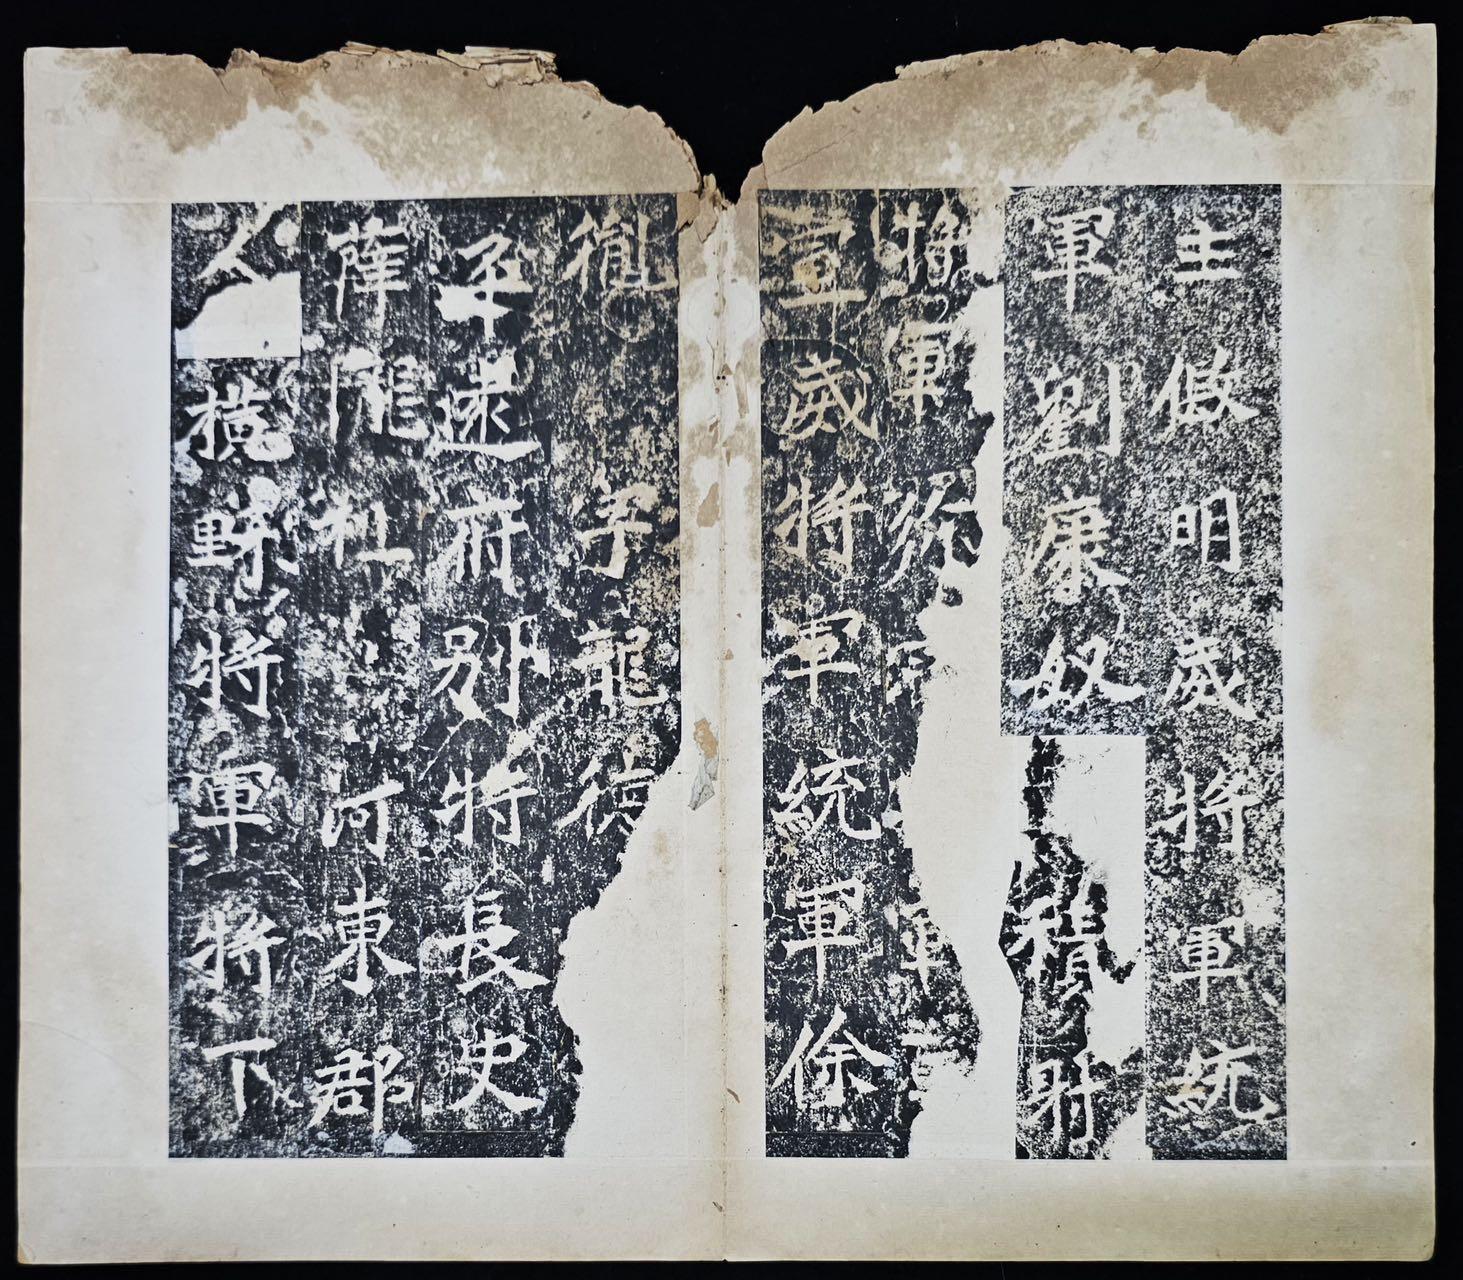 主假明威將軍統
軍劉康奴積射
將軍
宣威將軍統軍徐
字龍
平遠府別將長史
薛 河東郡
人橫野將軍將下